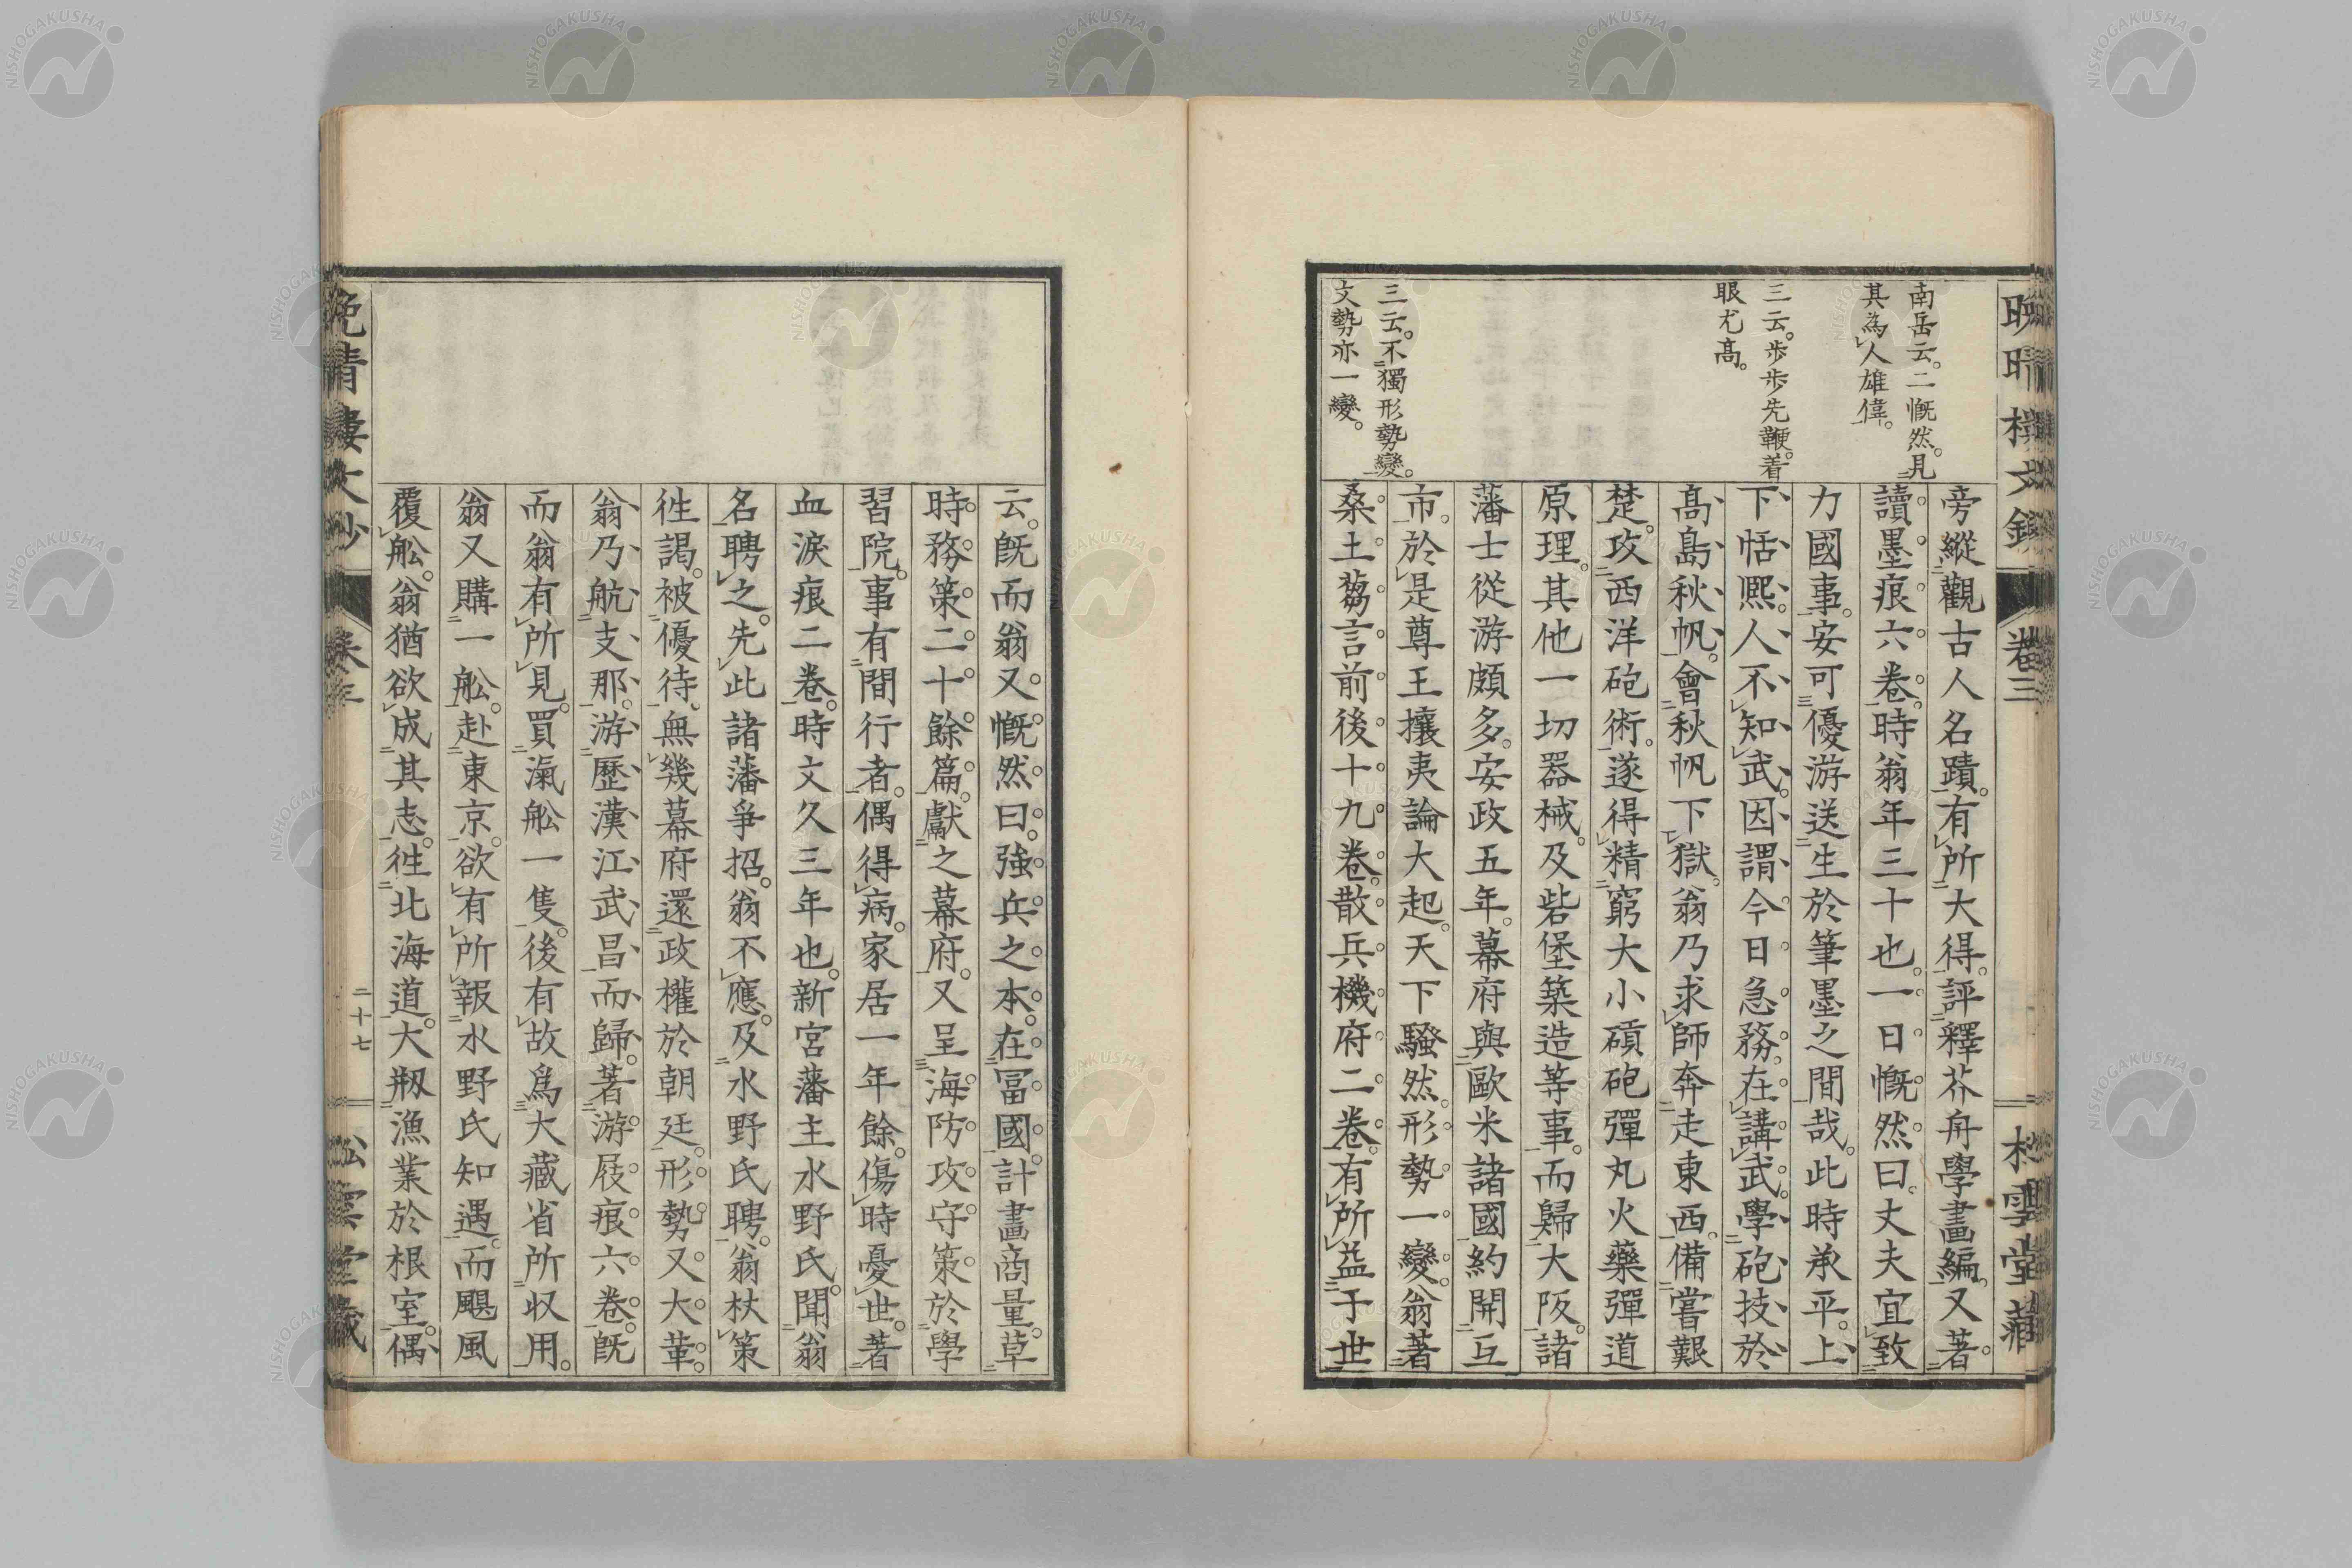 南岳云。二慨然。見
其為人雄偉。
三云。歩歩先鞭。着
眼尤高。
三云。不獨形勢變。
文勢亦一變。
卷三
旁縱觀古人名蹟。有所大得。評釋芥舟學畫編。又著。
讀墨痕六卷。時翁年三十也。一日慨然曰。丈夫宜致
力國事。安可優游送生於筆墨之間哉。此時承平。上
下恬熈。人不知武。因謂今日急務。在講武。學砲技於
髙島秋帆。會秋帆下獄。翁乃求師奔走東西。備嘗艱
楚。攻西洋砲術。遂得精窮大小碩砲彈丸火藥彈道
原理。其他一切器械。及砦堡築造等事。而歸大阪。諸
藩士從游頗多。安政五年。幕府與歐米諸國約開互
市。於是尊王攘夷論大起。天下騷然。形勢一變。翁著
桑土蒭言前後十九卷。散兵機府二卷。有所益于世
云。既而翁又慨然曰。強兵之本。在冨國。計畫商量。草
時務策二十餘篇。獻之幕府。又呈海防攻守策於學
習院。事有間行者。偶得病。家居一年餘。傷時憂世。著
血淚痕二卷。時文久三年也。新宮藩主水野氏。聞翁
名聘之。先此諸藩爭招。翁不應。及水野氏聘。翁杖策
徃謁。被優待。無幾幕府還政權於朝廷。形勢又大革。
翁乃航支那。游歷漢江武昌而歸。著游屐痕六卷。既
而翁有所見。買滊舩一隻。後有故爲大藏省所収用。
翁又購一舩。赴東京。欲有所報水野氏知遇。而颶風
覆舩。翁猶欲成其志。徃北海道。大剏漁業於根室。偶
二十七